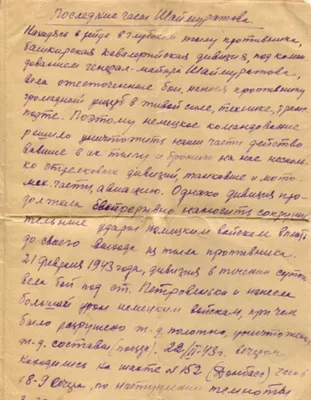 Последние часы Шаймуратова.
Находясь в рейде в глубоком тылу противника,
башкирская кавалерийская дивизия, под коман
дованием генерал-майора Шаймуратова,
вела ожесточенные бои, нанося противнику
громадный ущерб в живой силе, технике, транс
порте. Поэтому немецкое командование
решило уничтожить наши части действо
вавшие в их тылу и бросило на нас несколь
ко стрелковых дивизий, танковые и мото-
мех. части, авиацию. Однако дивизия про-
должала непрерывно наносить сокруши
тельные удары немецким войскам вплоть
до своего выхода из тыла противника.
21 февраля 1943 года, дивизия в течении суток
вела бой под ст. Петровенько и нанесла
большой урон немецким войскам, при чем
было разрушено ж.д. полотно, уничтожены
ж.д. составы (поезда). 22/II-43г. вечером
находились на шахте №152 (Донбасс) часов
в 8-9 вечера, по наступлении темноты